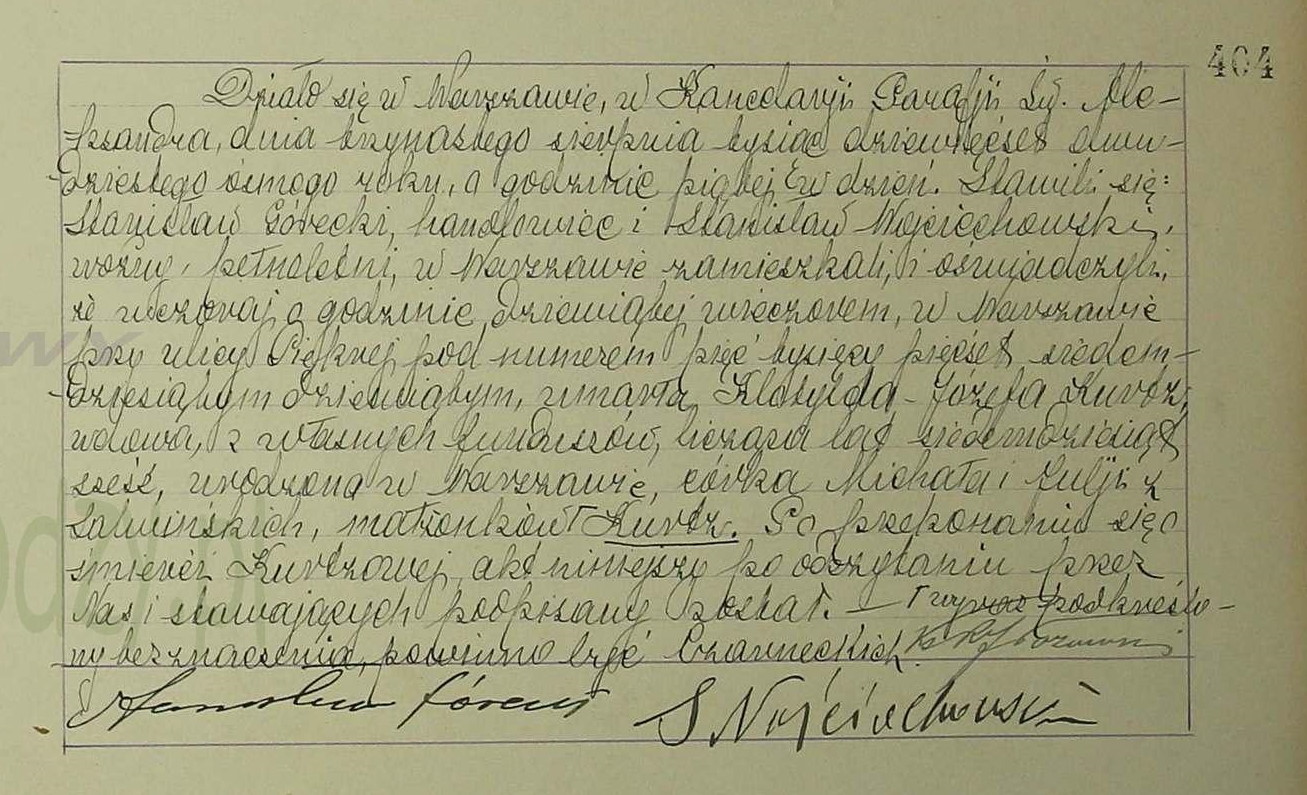 404
Działo się w Warszawie, w Kancelaryji Parafji Św. Ale-
-ksandra, dnia trzynastego sierpnia tysiąc dziewięćset dwu-
-dziestego ósmego roku, o godzinie piątej w dzień. Stawili się:
Stanisław Górecki, handlowiec i Stanisław Wojciechowski,
woźny, pełnoletni, w Warszawie zamieszkali, i oświadczyli,
że wczoraj o godzinie dziewiątej wieczorem, w Warszawie
przy ulicy Pięknej pod numerem pięć tysięcy pięćset siedem-
-dziesiątym dziewiątym, umarła Klotylda-Józefa Kurtz,
wdowa, z własnych funduszów, licząca lat siedemdziesiąt
sześć, urodzona w Warszawie, córka Michała i Julji z
małżonków Kurtz. Po przekonaniu się o
śmierci Kurtzowej, akt niniejszy po odczytaniu przez
Nas i stawających podpisany został. — wyraz podkreślo-
ny bez znaczenia, powinno być Czarneckich.
Stanisław Górecki S Wojciechowski